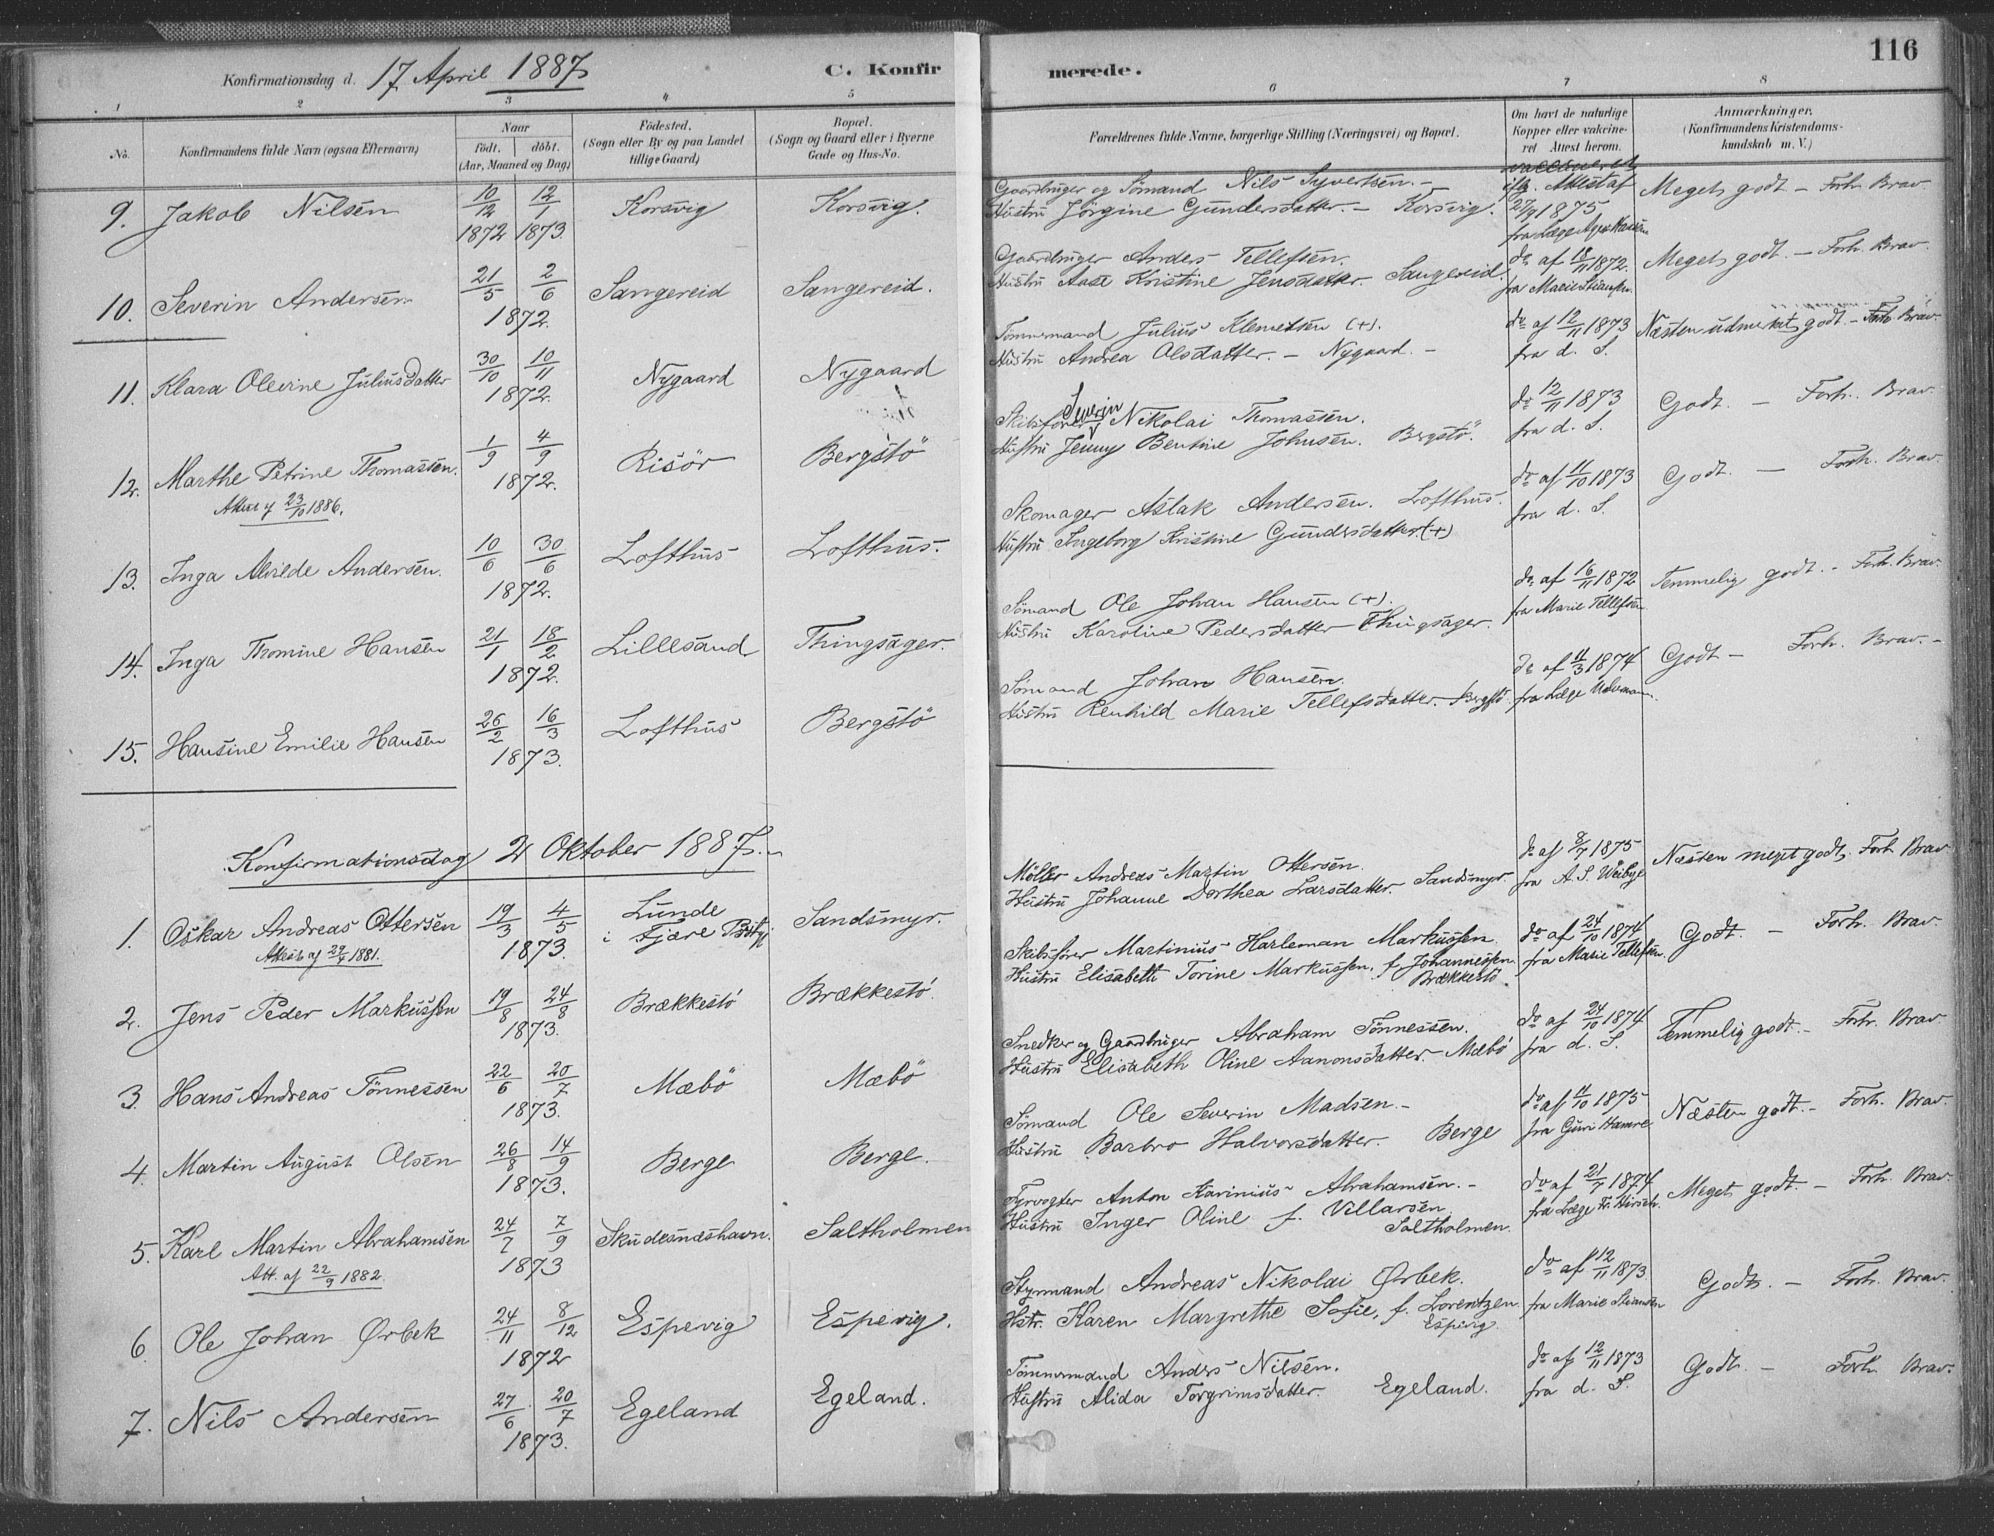 116
Konfirmationsdag d. 17 April 1887
C. Konfirmerede.
1 2 3 4 5 6 7 8
No. Konfirmandens fulde Navn (ogsaa Efternavn) Naar født. døbt. (Aar, Maaned og Dag) Fødested. (Sogn eller By og paa Landet tillige Gaard) Bopæl. (Sogn og Gaard eller i Byerne Gade og Hus-No. Forældrenes fulde Navne, borgerlige Stilling (Næringsvei) og Bopæl. Om havt de naturlige Kopper eller vakcineret Attest herom. Anmærkninger. (Konfirmandens Kristendomskundskab m. V.)
9. Jakob Nilsen 10/12 1872 12/1 1873. Korsvig Korsvig.
Gaardbruger og Sömand Nils Syvertsen. –
Hustru Jörgine Gundersdatter. – Korsvig.
iflg. Attest af 27/9 1875 fra Læge
Meget godt – Forh. Brav
10. Severin Andersen 21/5 2/6 1872. Sangereid Sangereid.
Gaardbruger Anders Tellefsen.
Hustru Aase Kristine Jensdatter. Sangereid.
do af 18/11 1872. fra Marie Stiansen.
Meget godt. – Forh. Brav
11. Klara Olevine Juliusdatter 30/10 10/11 1872. Nygaard Nygaard
Tömmermand Julius Klemetsen (+).
Hustru Andrea Olsdatter. – Nygaard. –
do af 12/11 1873 fra d. S.
Næsten udmerket godt – Forh. Brav.
12. Marthe Petrine Thomassen. 1/9 4/9 1872. Risör Bergstö
Attest af 23/10 1886.
Skibsförer Severin Nikolai Thomassen.
Hustru Jenny Bentine Johnsen. Bergstö.
do 12/11 1873 fra d. S.
Godt. – Forh. Brav.
13. Inga Alvilde Andersen. 10/6 30/6 1872. Lofthus Lofthus.
Skomager Aslak Andersen. Lofthus.
Hustru Ingeborg Kristine Gundersdatter. (+)
do af 11/10 1873 fra d. S.
Godt. – Forh. Brav.
14. Inga Thomine Hansen 21/1 18/2 1872. Lillesand Thingsager.
Sömand Ole Johan Hansen (+).
Hustru Karoline Pedersdatter – Thingsager.
do af 16/11 1872 fra Marie Tellefsen
Temmelig godt. – Forh. Brav.
15. Hansine Emilie Hansen 26/2 16/3 1873. Lofthus Bergstö
Sömand Johan Hansen.
Hustru Renhild Marie Tellefsdatter. Bergstö.
do af 11/3 1874 fra Læge
Godt – Forh. Brav. –
Konfirmationsdag 2 Oktober 1887. –
1. Oskar Andreas Ottersen 19/3 4/5 1873. Lunde i Fjære Sandsmyr.
Attest af 29/7 1881.
Möller Andreas Martin Ottersen.
Hustru Johanne Dorthea Larsdatter. Sandsmyr.
do af 8/7 1875 fra A. S. Weibye
Næsten meget godt. Forh. Brav
2. Jens Peder Markussen 19/8 24/8 1873. Brækkestö Brækkestö.
Skibsförer Martinius Harleman Markussen.
Hustru Elisabeth Torine Markussen, f. Johannessen Brækkestö.
do af 24/10 1874 fra Marie Tellefsen.
Godt. – Forh. Brav.
3. Hans Andreas Tönnessen 22/6 20/7 1873. Mæbö Mæbö
Snedker og Gaardbruger Abraham Tönnessen.
Hustru Elisabeth Oline Aanonsdatter. – Mæbö
do af 24/10 1874 fra d. S.
Temmelig godt. – Forh. Brav.
4. Martin August Olsen 26/8 14/9 1873. Berge Berge.
Sömand Ole Severin Madsen. –
Hustru Barbro Halvorsdatter. Berge
do af 11/10 1875 fra Guri Hamre
Næsten godt. – Forh. Brav.
5. Karl Martin Abrahamsen 24/7 7/9 1873 Skudesnæshavn. Saltholmen
Att. af 22/9 1882.
Fyrvogter Anton Karinius Abrahamsen. –
Hustru Inger Oline f. Villarsen. Saltholmen.
do af 21/7 1874 fra Læge Fr. Hirsch.
Meget godt. – Forh. Brav.
6. Ole Johan Ørbek 24/11 8/12 1872 Espevig Espevig.
Styrmand Andreas Nikolai Ørbek.
Hstr. Karen Margrethe Sofie, f. Lorentzen Espevig.
do af 12/11 1873. fra Marie Stiansen
Godt. – Forh. Brav.
7. Nils Andersen 27/6 20/7 1873. Egeland Egeland.
Tömmermand Anders Nilsen.
Hustru Alida Torgrimsdatter. Egeland.
do af 12/11 1873 fra d. S.
Godt. – Forh. Brav.